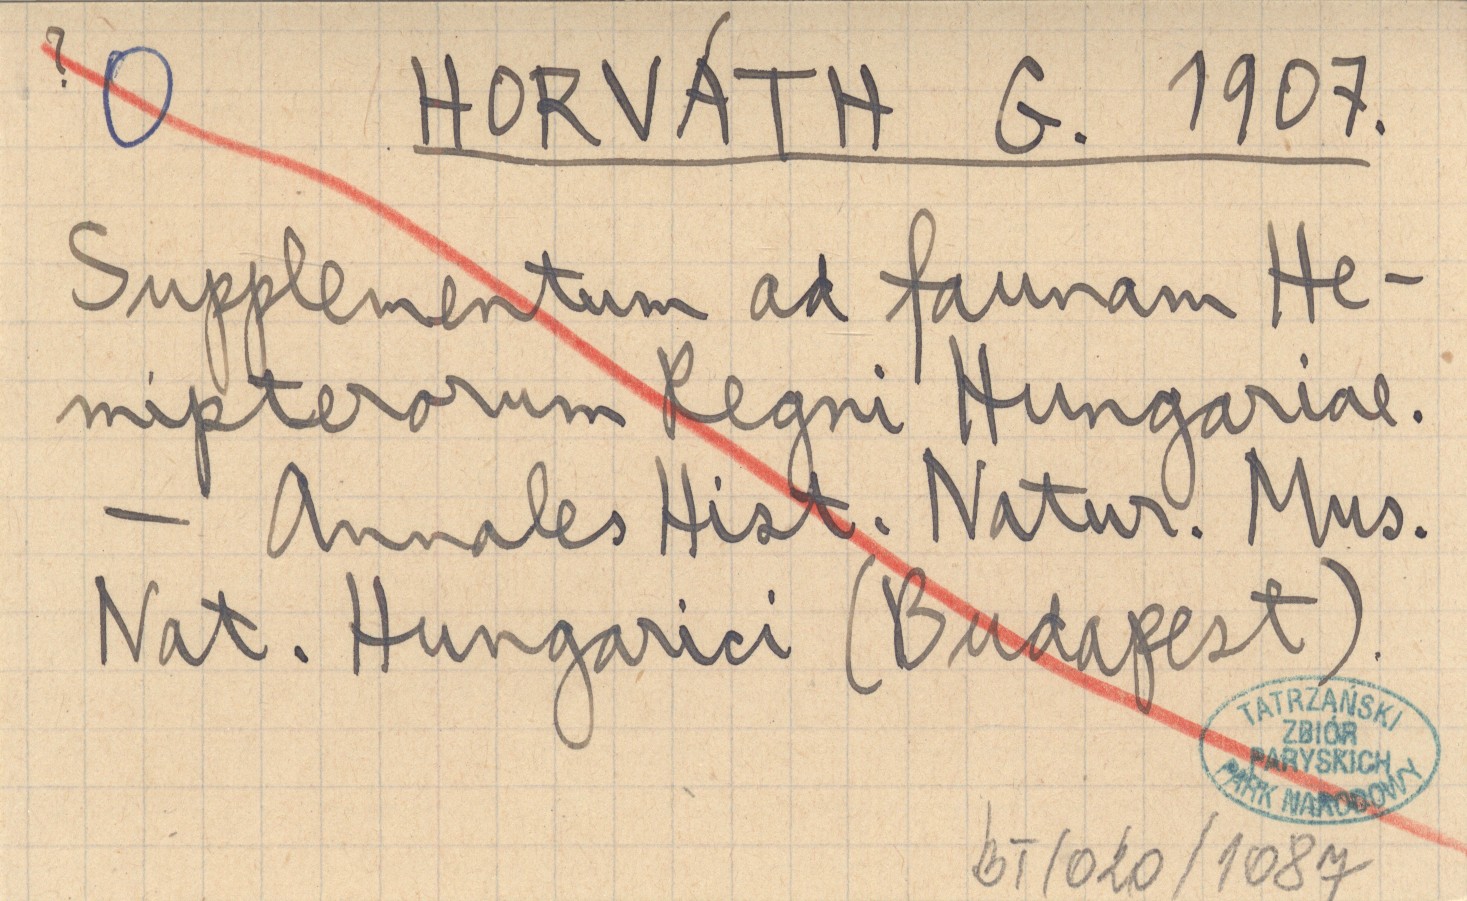 ? O HORVÁTH G. 1907.
Supplementum ad faunam He-
mipterorum Regni Hungariae.
— Annales Hist. Natur. Mus.
Nat. Hungarici (Budapest).
TATRZAŃSKI
ZBIÓR
PARYSKICH
PARK NARODOWY
bT/020/1087